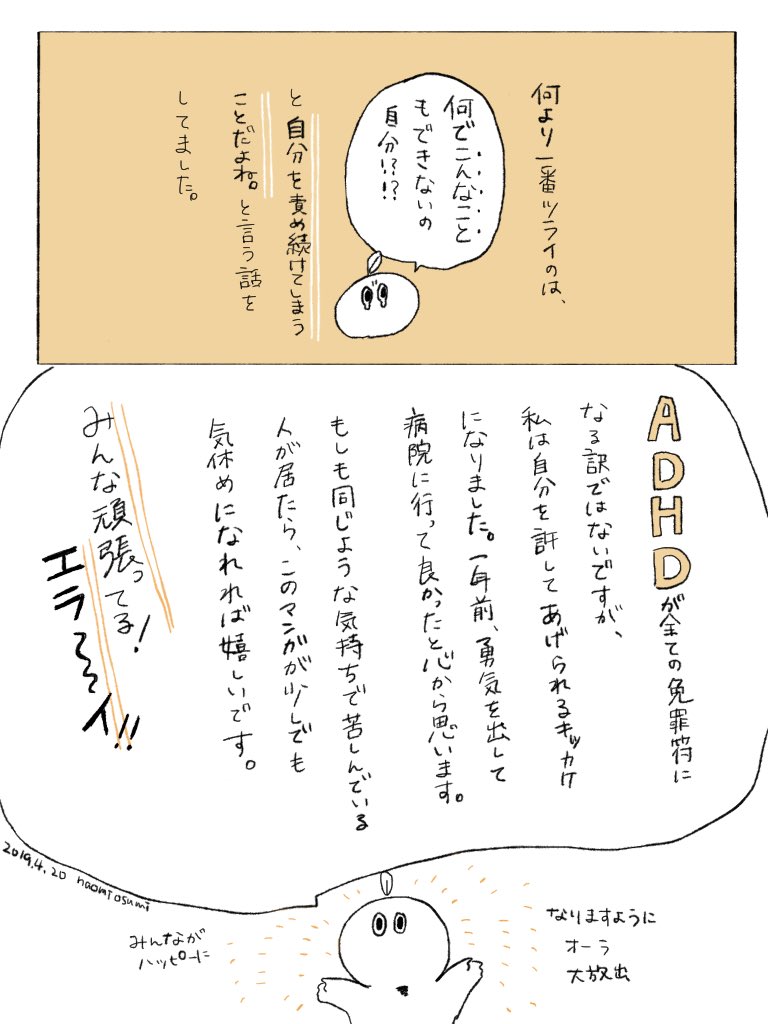 何より一番ツライのは、
何でこんなこと
もできないの
自分!?!?
と自分を責め続けてしまう
ことだよね。と言う話を
してました。
ADHDが全ての免罪符に
なる訳ではないですが、
私は自分を許してあげられるキッカケ
になりました。一年前、勇気を出して
病院に行って良かったと心から思います。
もしも同じような気持ちで苦しんでいる
人が居たら、このマンガが少しでも
気休めになれれば嬉しいです。
みんな頑張ってる!
エラァイ!!
2019.4.20 naomiosumi
みんなが
ハッピーに
なりますように
オーラ
大放出